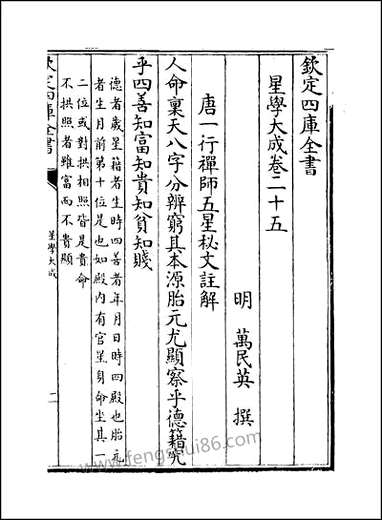 欽定四庫全書
星學大成卷二十五
明 萬民英 撰
唐一行禪師五星秘文註解
人命稟天八字分辨窮其本源胎元尤顯察乎德籍究
乎四善知富知貴知貧知賤
德者歲星籍者生時四善者年月日時四殿也胎元
者生月前第十位是也如殿內有官星身命坐其一
二位或對拱相照皆是貴命
不拱照者雖富而不貴顯
欽定四庫全書
星學大成
一
www.fengshui86.com